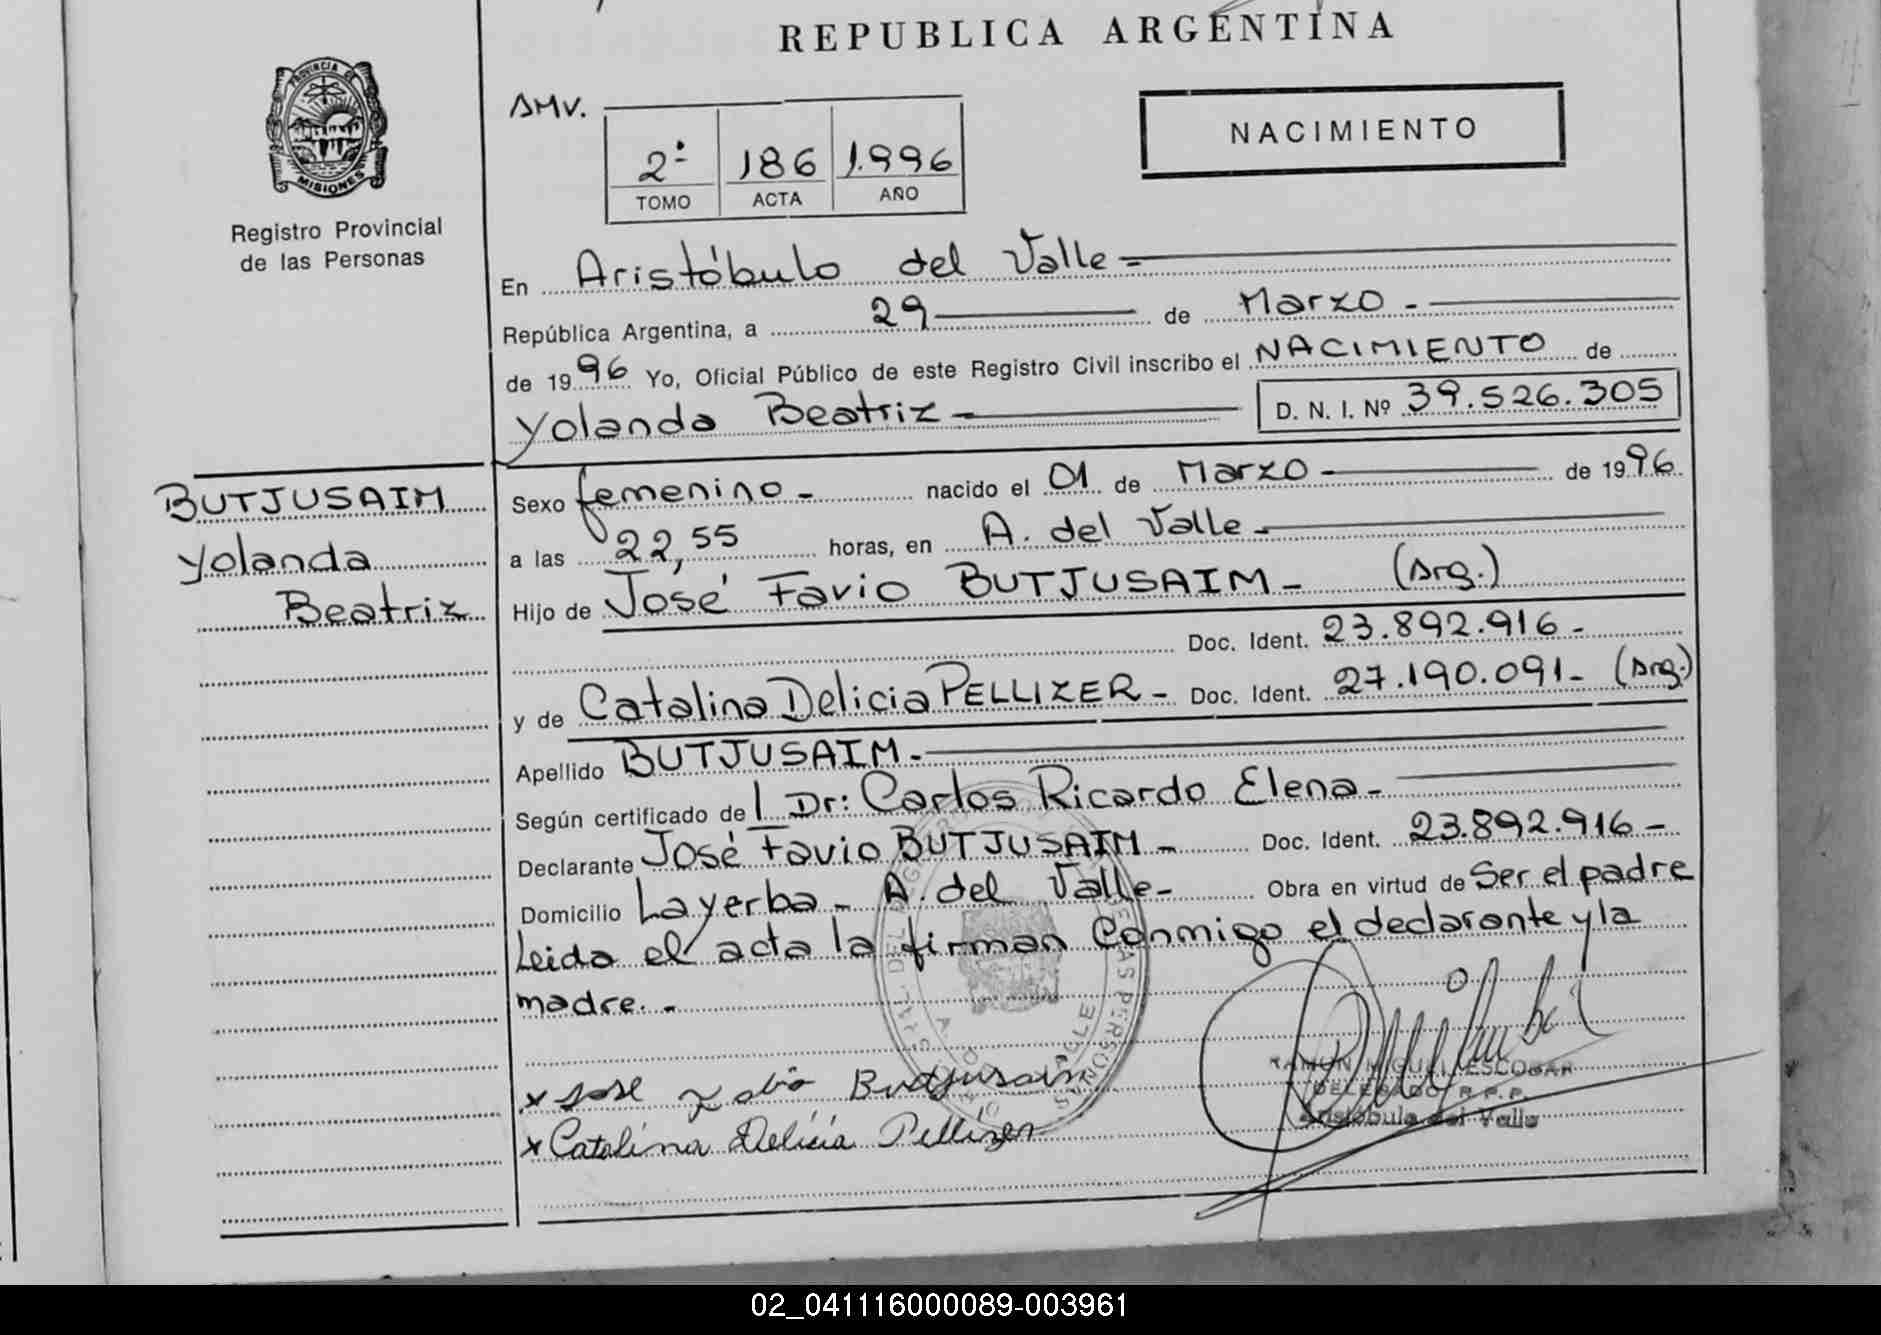 REPUBLICA ARGENTINA
PROVINCIA DE
MISIONES
Registro Provincial
de las Personas
AMV.
2º 186 1.996
TOMO ACTA AÑO
NACIMIENTO
En Aristóbulo del Valle -
República Argentina, a 29 de Marzo -
de 1996 Yo, Oficial Público de este Registro Civil inscribo el NACIMIENTO de
Yolanda Beatriz - D. N. I. Nº 39.526.305
BUTJUSAIM
Yolanda
Beatriz
Sexo femenino - nacido el 01 de Marzo - de 1996
a las 22,55 horas, en A. del Valle -
Hijo de José Favio BUTJUSAIM - (Arg.)
Doc. Ident. 23.892.916 -
y de Catalina Delicia PELLIZER - Doc. Ident. 27.190.091 - (Arg.)
Apellido BUTJUSAIM -
Según certificado del Dr: Carlos Ricardo Elena -
Declarante José Favio BUTJUSAIM - Doc. Ident. 23.892.916 -
Domicilio La yerba - A. del Valle - Obra en virtud de Ser el padre
Leida el acta la firman Conmigo el declarante y la
madre. -
x Jose Fabio Butjusaim
x Catalina Delicia Pellizer
RAMON MIGUEL ESCOBAR
DELEGADO R.P.P.
Aristóbulo del Valle
02_041116000089-003961